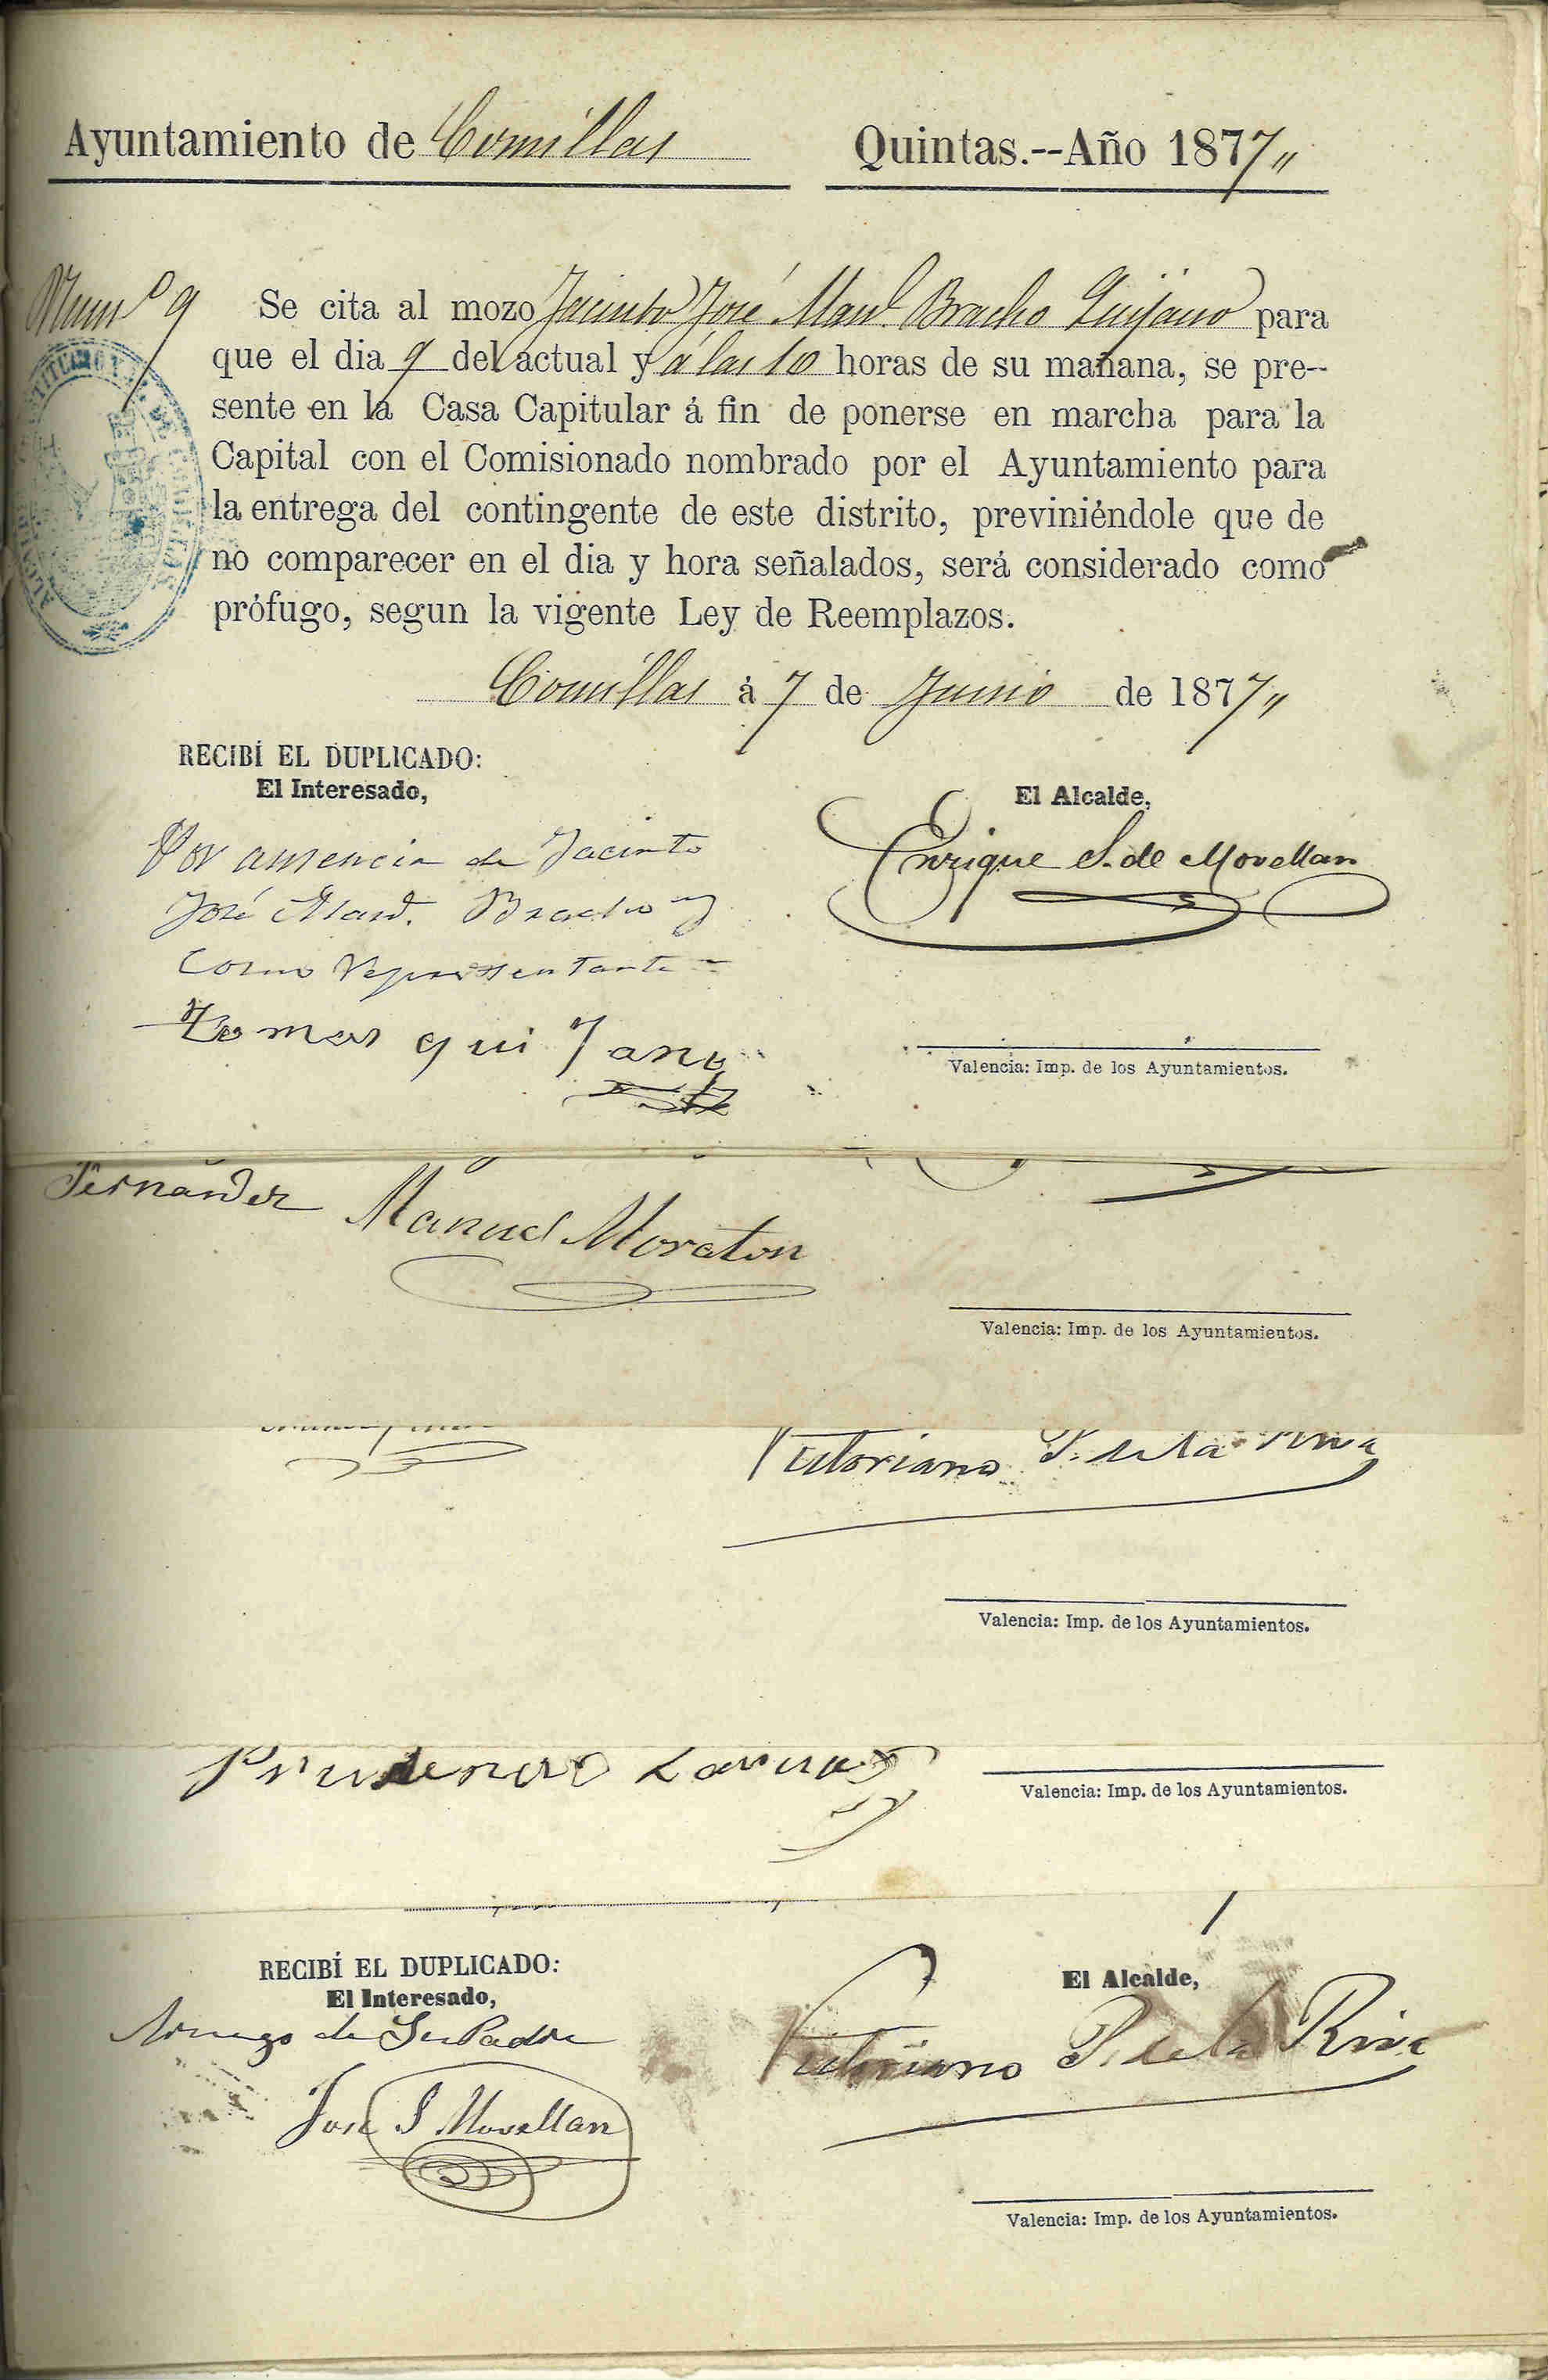 Ayuntamiento de Comillas Quintas.--Año 1877,,
Num.º 9 Se cita al mozo Jacinto José Manl. Bracho Quijano para
que el dia 9 del actual y á las 10 horas de su mañana, se pre-
sente en la Casa Capitular á fin de ponerse en marcha para la
Capital con el Comisionado nombrado por el Ayuntamiento para
la entrega del contingente de este distrito, previniéndole que de
no comparecer en el dia y hora señalados, será considerado como
prófugo, segun la vigente Ley de Reemplazos.
Comillas á 7 de Junio de 1877,,
RECIBÍ EL DUPLICADO:
El Interesado,
El Alcalde,
Por ausencia de Jacinto
José Manl. Bracho y
Como Representante
tomas quiJano
Enrique S. de Movellan
Valencia: Imp. de los Ayuntamientos.
Fernandez Manuel Moraton
Valencia: Imp. de los Ayuntamientos.
Victoriano P. de la Riva
Valencia: Imp. de los Ayuntamientos.
Prudencio
Valencia: Imp. de los Ayuntamientos.
RECIBÍ EL DUPLICADO:
El Interesado,
El Alcalde,
A ruego de Su Padre
Jose S Movellan
Victoriano P. de la Riva
Valencia: Imp. de los Ayuntamientos.